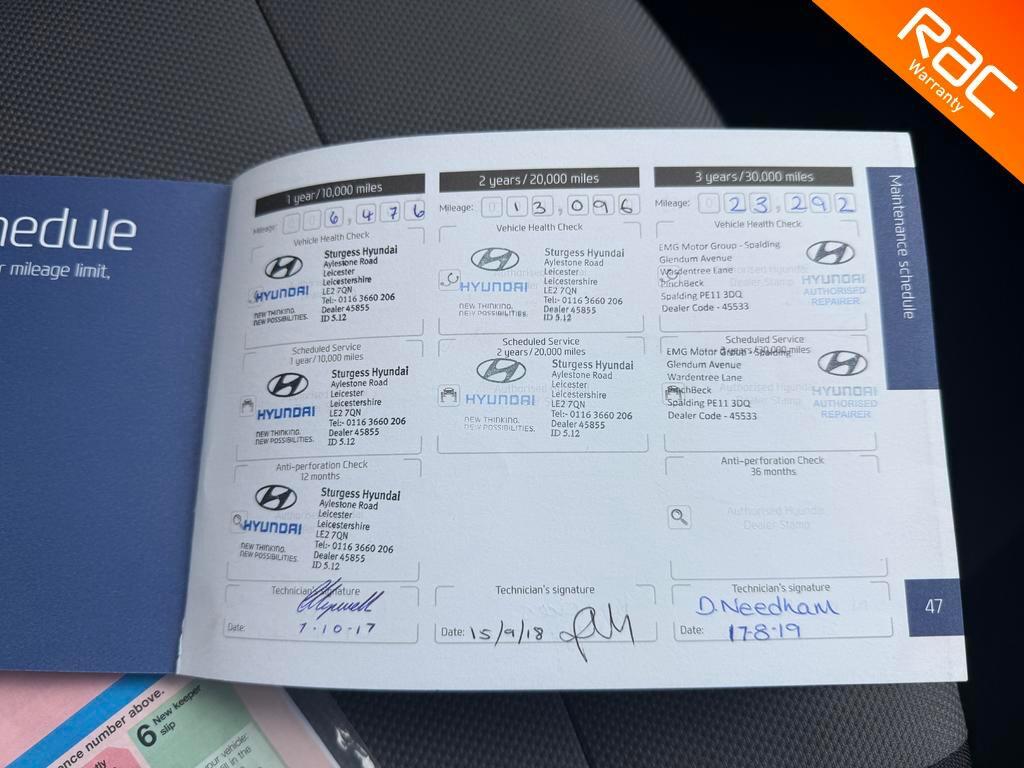 RAC
Warranty
hedule
r mileage limit,
1 year/10,000 miles
Mileage: 0 0 6,476
Vehicle Health Check
Sturgess Hyundai
Aylestone Road
Leicester
Leicestershire
LE2 7QN
Tel:- 0116 3660 206
Dealer 45855
ID 5.12
HYUNDAI
NEW THINKING.
NEW POSSIBILITIES.
Scheduled Service
1 year/10,000 miles
Sturgess Hyundai
Aylestone Road
Leicester
Leicestershire
LE2 7QN
Tel:- 0116 3660 206
Dealer 45855
ID 5.12
HYUNDAI
NEW THINKING.
NEW POSSIBILITIES.
Anti-perforation Check
12 months
Sturgess Hyundai
Aylestone Road
Leicester
Leicestershire
LE2 7QN
Tel:- 0116 3660 206
Dealer 45855
ID 5.12
HYUNDAI
NEW THINKING.
NEW POSSIBILITIES.
Technician's signature
Date: 7-10-17
2 years/20,000 miles
Mileage: 0 13,096
Vehicle Health Check
Sturgess Hyundai
Aylestone Road
Leicester
Leicestershire
LE2 7QN
Tel:- 0116 3660 206
Dealer 45855
ID 5.12
HYUNDAI
NEW THINKING.
NEW POSSIBILITIES.
Scheduled Service
2 years/20,000 miles
Sturgess Hyundai
Aylestone Road
Leicester
Leicestershire
LE2 7QN
Tel:- 0116 3660 206
Dealer 45855
ID 5.12
HYUNDAI
NEW THINKING.
NEW POSSIBILITIES.
Technician's signature
Date: 15/9/18
3 years/30,000 miles
Mileage: 0 23,292
Vehicle Health Check
EMG Motor Group - Spalding
Glendum Avenue
Wardentree Lane
PinchBeck
Spalding PE11 3DQ
Dealer Code - 45533
HYUNDAI
AUTHORISED
REPAIRER
Scheduled Service
3 years/30,000 miles
EMG Motor Group - Spalding
Glendum Avenue
Wardentree Lane
PinchBeck
Spalding PE11 3DQ
Dealer Code - 45533
HYUNDAI
AUTHORISED
REPAIRER
Anti-perforation Check
36 months
Authorised Hyundai
Dealer Stamp
Technician's signature
D. Needham
Date: 17-8-19
Maintenance schedule
47
ence number above.
6 New keeper
slip